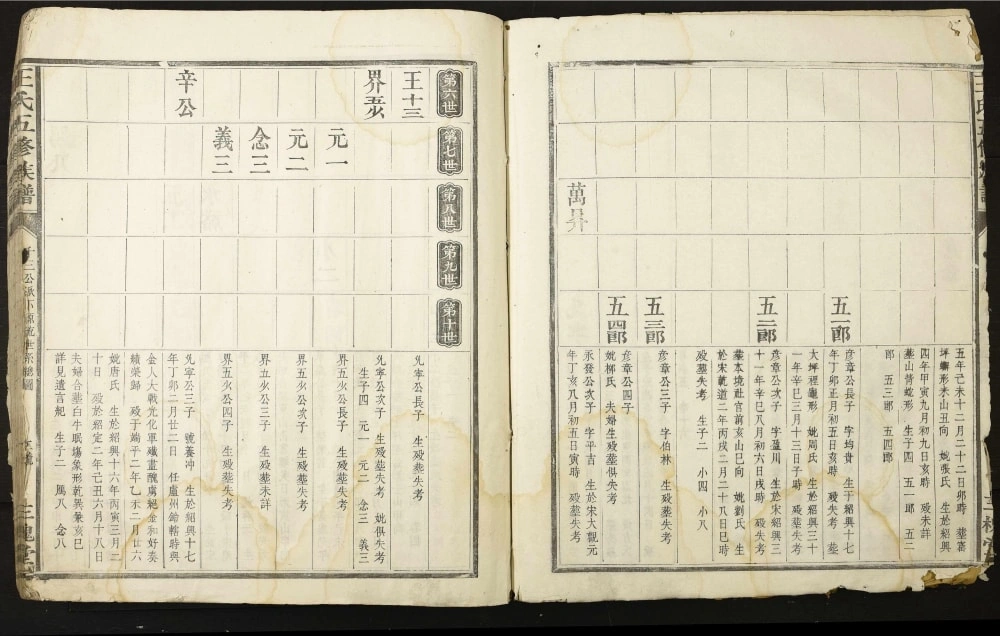 五年己未十二月二十二日卯時 葬
坪 形 山丑向 妣張氏 生於紹興
四年甲寅九月初九日亥時 歿未詳
葬山背 形 生子四 五一郎 五二
郎 五三郎 五四郎
五一郎
彦章公長子 字均貴 生于紹興十七
年丁卯正月初五日亥時 歿失考 葬
大坪裡 形 妣周氏 生於紹興三十
一年辛巳三月十三日子時
五二郎
彦章公次子 字盈川 生於宋紹興三
十一年辛巳八月初六日戌時 歿失考
葬本境社官前亥山巳向 妣劉氏 生
於宋乾道二年丙戌二月二十八日巳時
歿葬失考 生子二 小四 小八
五三郎
彦章公三子 字伯林 生歿葬失考
五四郎
彦章公四子
妣柳氏 夫婦生歿葬俱失考
萬昇
永發公次子 字平吉 生於宋大觀元
年丁亥八月初五日寅時 歿葬失考
第六世
第七世
第八世
第九世
第十世
王十三
允寧公長子 生歿葬失考
界五
允寧公次子 生歿葬失考 妣俱失考
生子四 元一 元二 念三 義三
元一
界五 公長子 生歿葬失考
元二
界五 公次子 生歿葬失考
念三
界五 公三子 生歿葬未詳
義三
界五 公四子 生歿葬失考
辛公
允寧公三子 號養冲 生於紹興十七
年丁卯二月廿二日 任盧州 轄時與
金人大戰光化軍殲畫醜虜 金和好奏
績榮歸 歿于端平二年乙未二月廿六
妣唐氏 生於紹興十六年丙寅三月二
十日 歿於紹定二年己丑六月十八日
夫婦合葬白牛眠塲象形乾巽兼亥巳
詳見遺言 生子二 萬八 念八
王氏五修族譜
十三公派下源流世系總圖
三槐堂